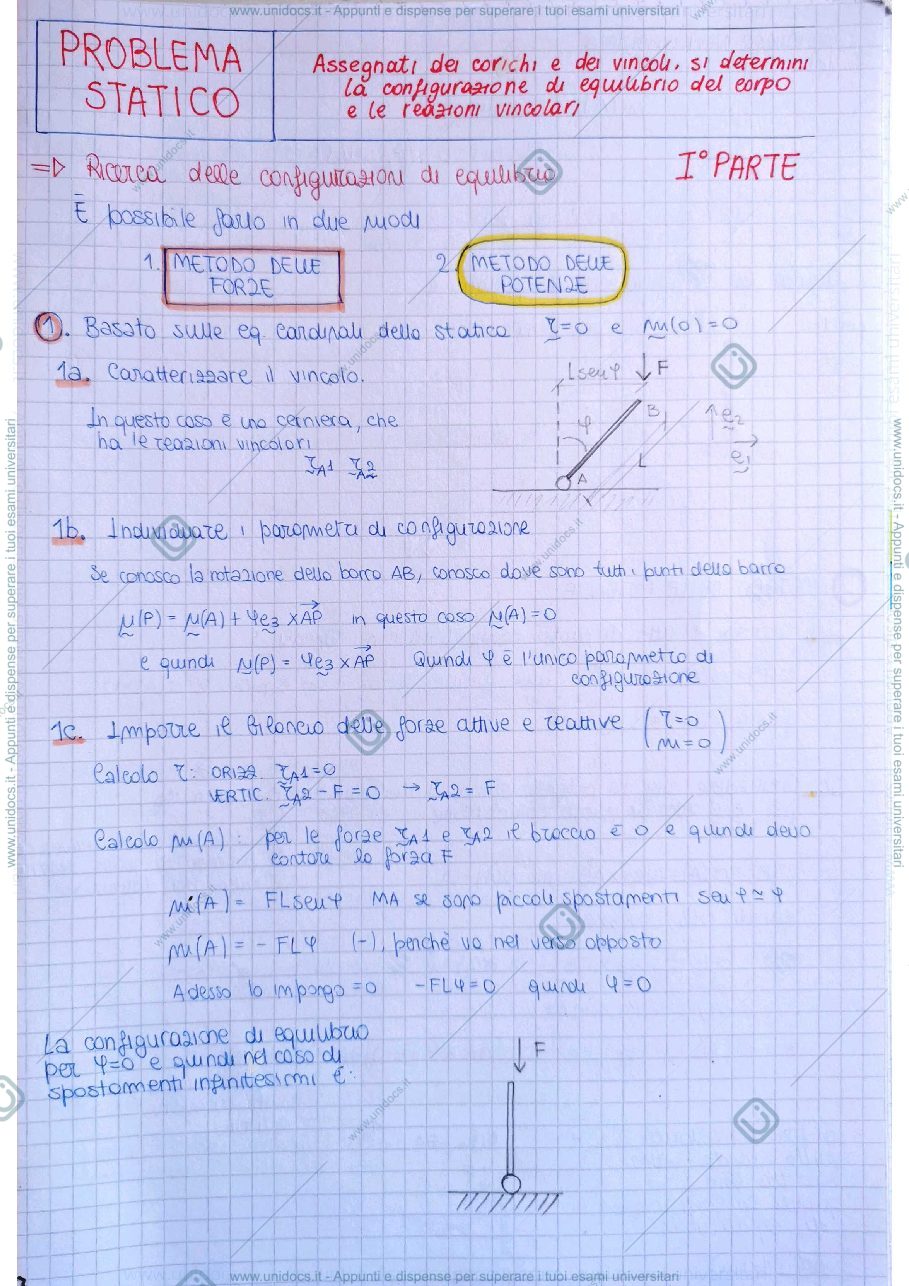 www.unidocs.it - Appunti e dispense per superare i tuoi esami universitari
PROBLEMA
STATICO
Assegnati dei carichi e dei vincoli, si determini
la configurazione di equilibrio del corpo
e le reazioni vincolari
=> Ricerca delle configurazioni di equilibrio
I° PARTE
È possibile farlo in due modi
1. METODO DELLE
FORZE
2. METODO DELLE
POTENZE
1. Basato sulle eq. cardinali della statica r=0 e m(0)=0
1a. Caratterizzare il vincolo.
Lsenφ F
φ B e2
e1
L
A
In questo caso è una cerniera, che
ha le reazioni vincolari
rA1 rA2
1b. Individuare i parametri di configurazione
Se conosco la rotazione della barra AB, conosco dove sono tutti i punti della barra
u(P) = u(A) + φe3 × AP in questo caso u(A)=0
e quindi u(P) = φe3 × AP Quindi φ è l'unico parametro di
configurazione
1c. Imporre il bilancio delle forze attive e reattive (r=0
m=0)
Calcolo r: ORIZZ. rA1=0
VERTIC. rA2 - F = 0 → rA2 = F
Calcolo m(A): per le forze rA1 e rA2 il braccio è 0 e quindi devo
contare la forza F
m(A) = FLsenφ MA se sono piccoli spostamenti senφ ≃ φ
m(A) = - FLφ (-), perchè va nel verso opposto
Adesso lo impongo =0 -FLφ=0 quindi φ=0
La configurazione di equilibrio
per φ=0 e quindi nel caso di
spostamenti infinitesimi è:
F
www.unidocs.it - Appunti e dispense per superare i tuoi esami universitari